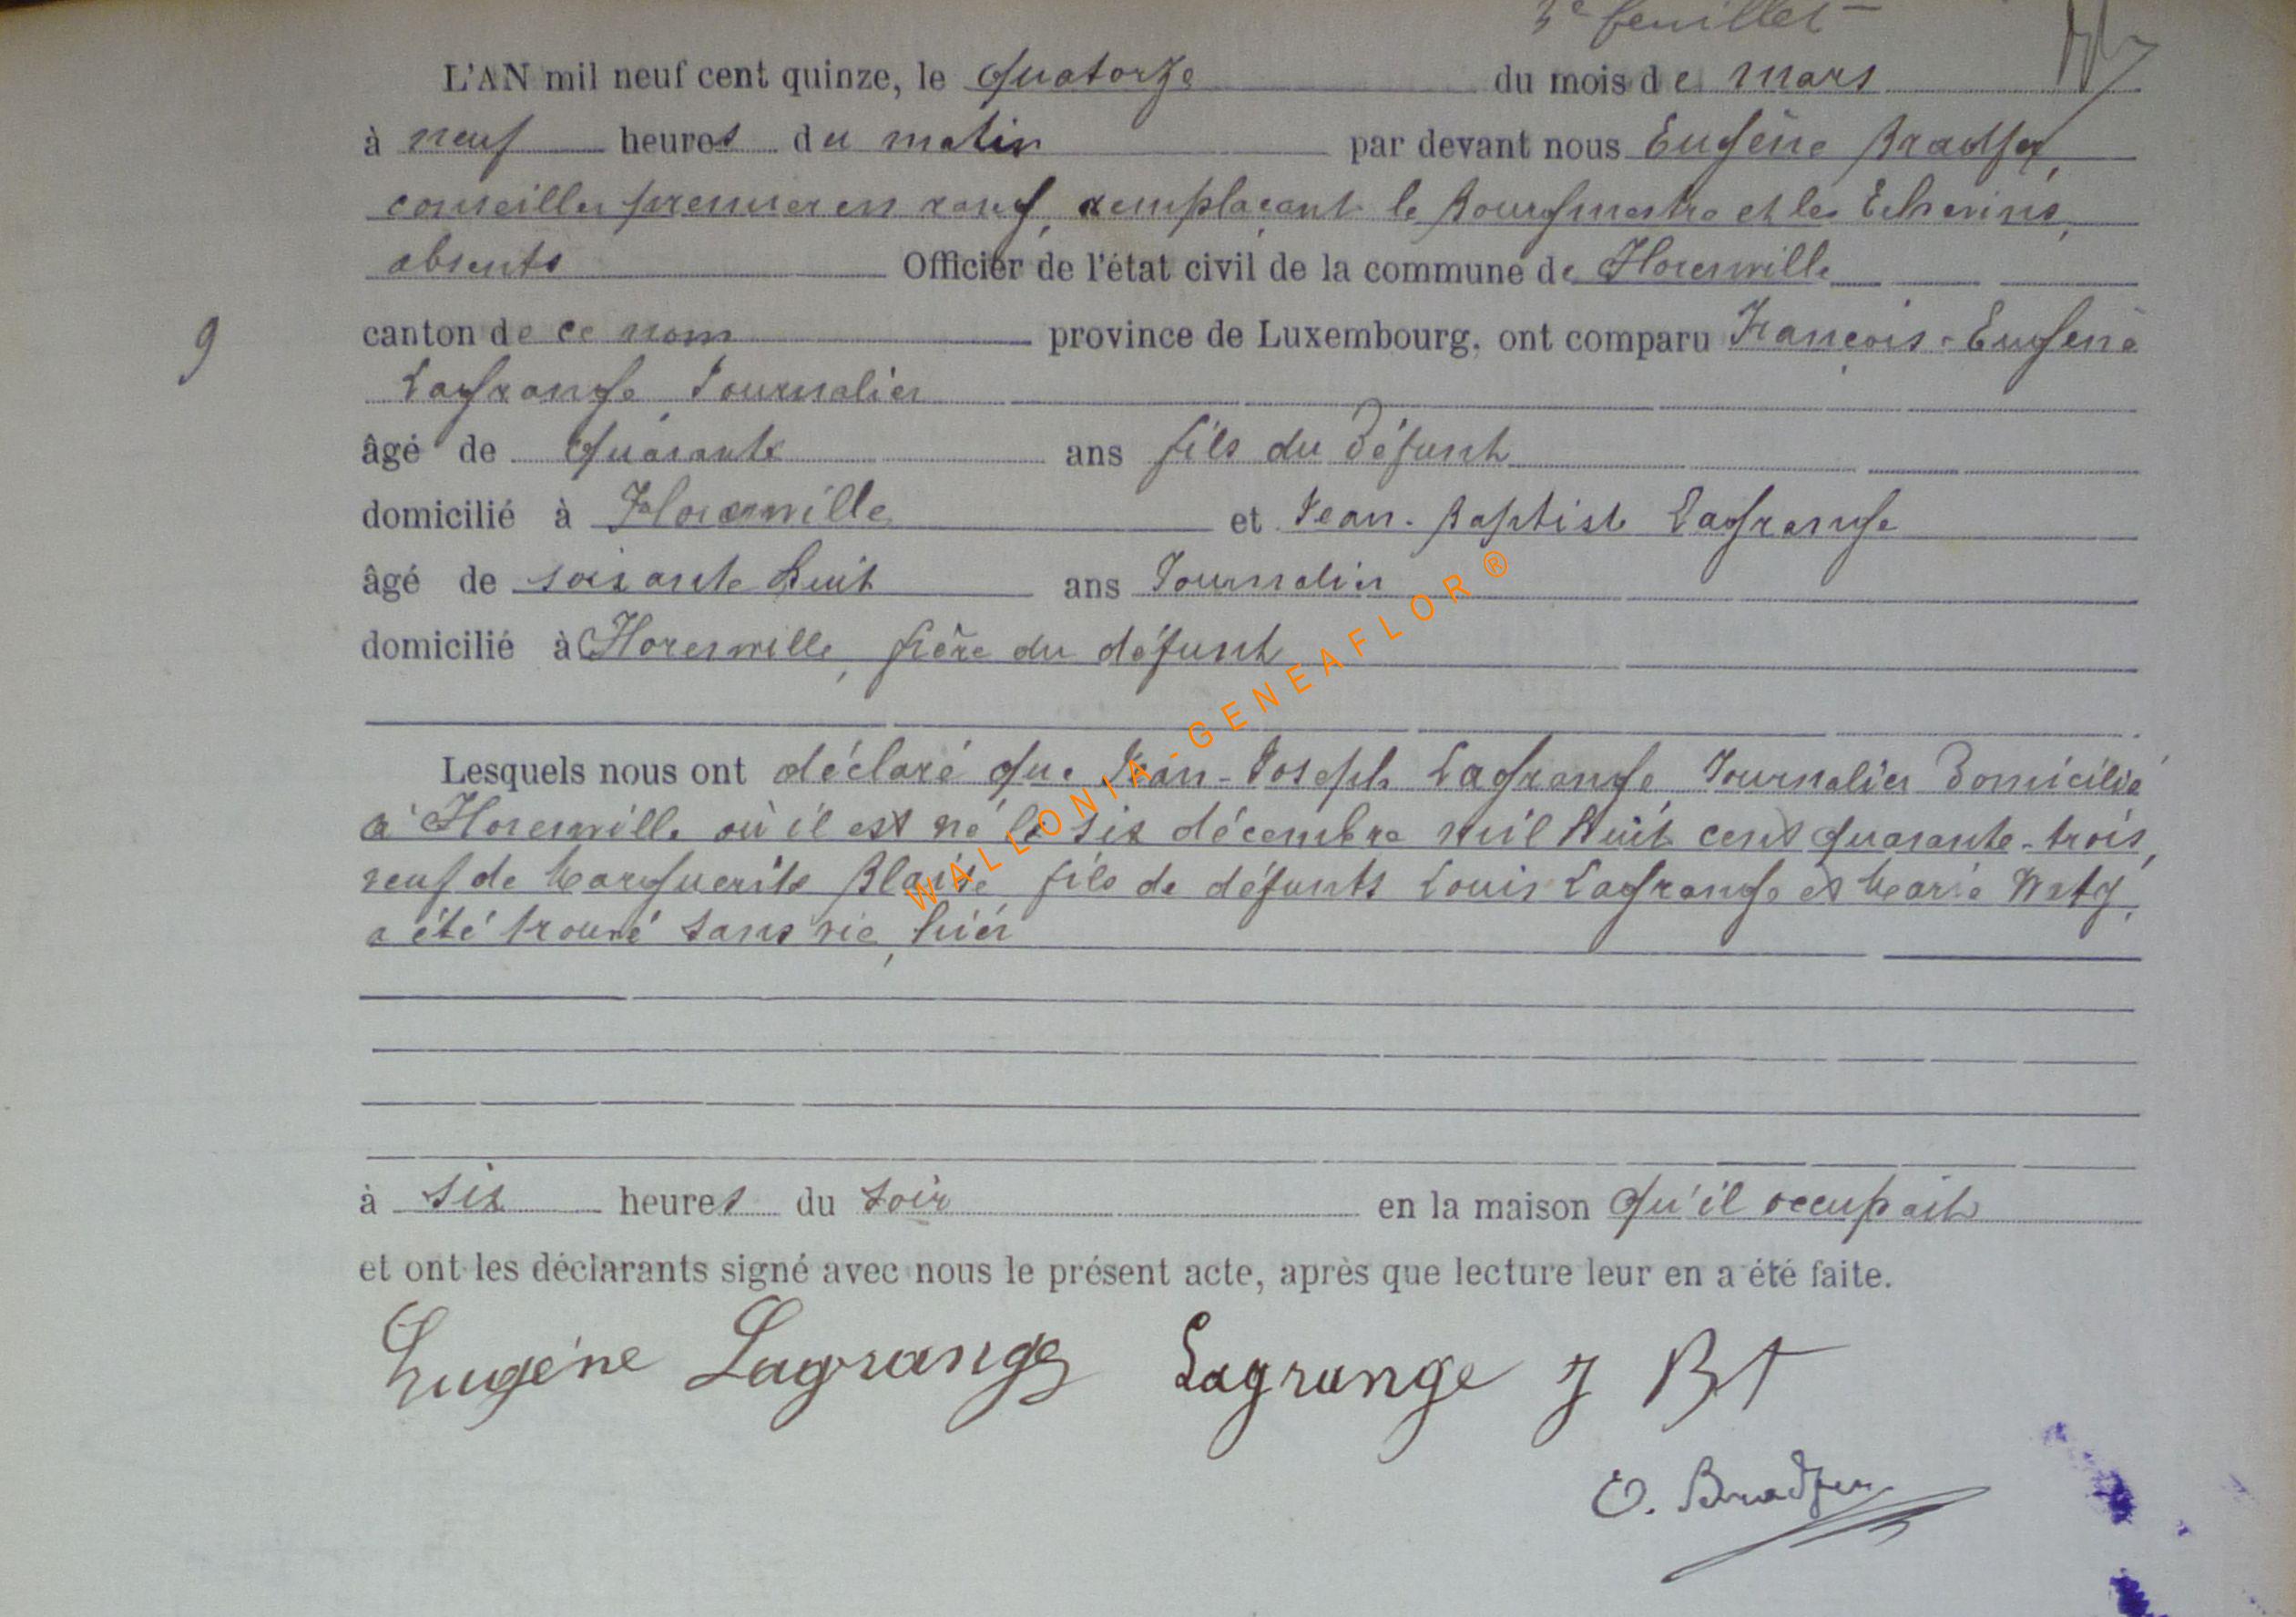 3e feuillet
L'AN mil neuf cent quinze, le quatorze du mois de mars
à neuf heures du matin par devant nous Eugène Bradfer,
conseiller premier en rang, remplaçant le Bourgmestre et les Echevins,
absents Officier de l'état civil de la commune de Florenville
9
canton de ce nom province de Luxembourg, ont comparu François-Eugène
Lagrange, Journalier
âgé de quarante ans fils du défunt
domicilié à Florenville et Jean-Baptiste Lagrange
âgé de soixante huit ans Journalier
domicilié à Florenville, frère du défunt
Lesquels nous ont déclaré que Jean-Joseph Lagrange, Journalier domicilié
à Florenville où il est né le six décembre mil huit cent quarante-trois,
veuf de Marguerite Blaise fils de défunts Louis Lagrange et Marie Watg,
a été trouvé sans vie, hier
à six heures du soir en la maison qu'il occupait
et ont les déclarants signé avec nous le présent acte, après que lecture leur en a été faite.
Eugène Lagrange Lagrange J Bt
E. Bradfer
WALLONIA-GENEAFLOR®